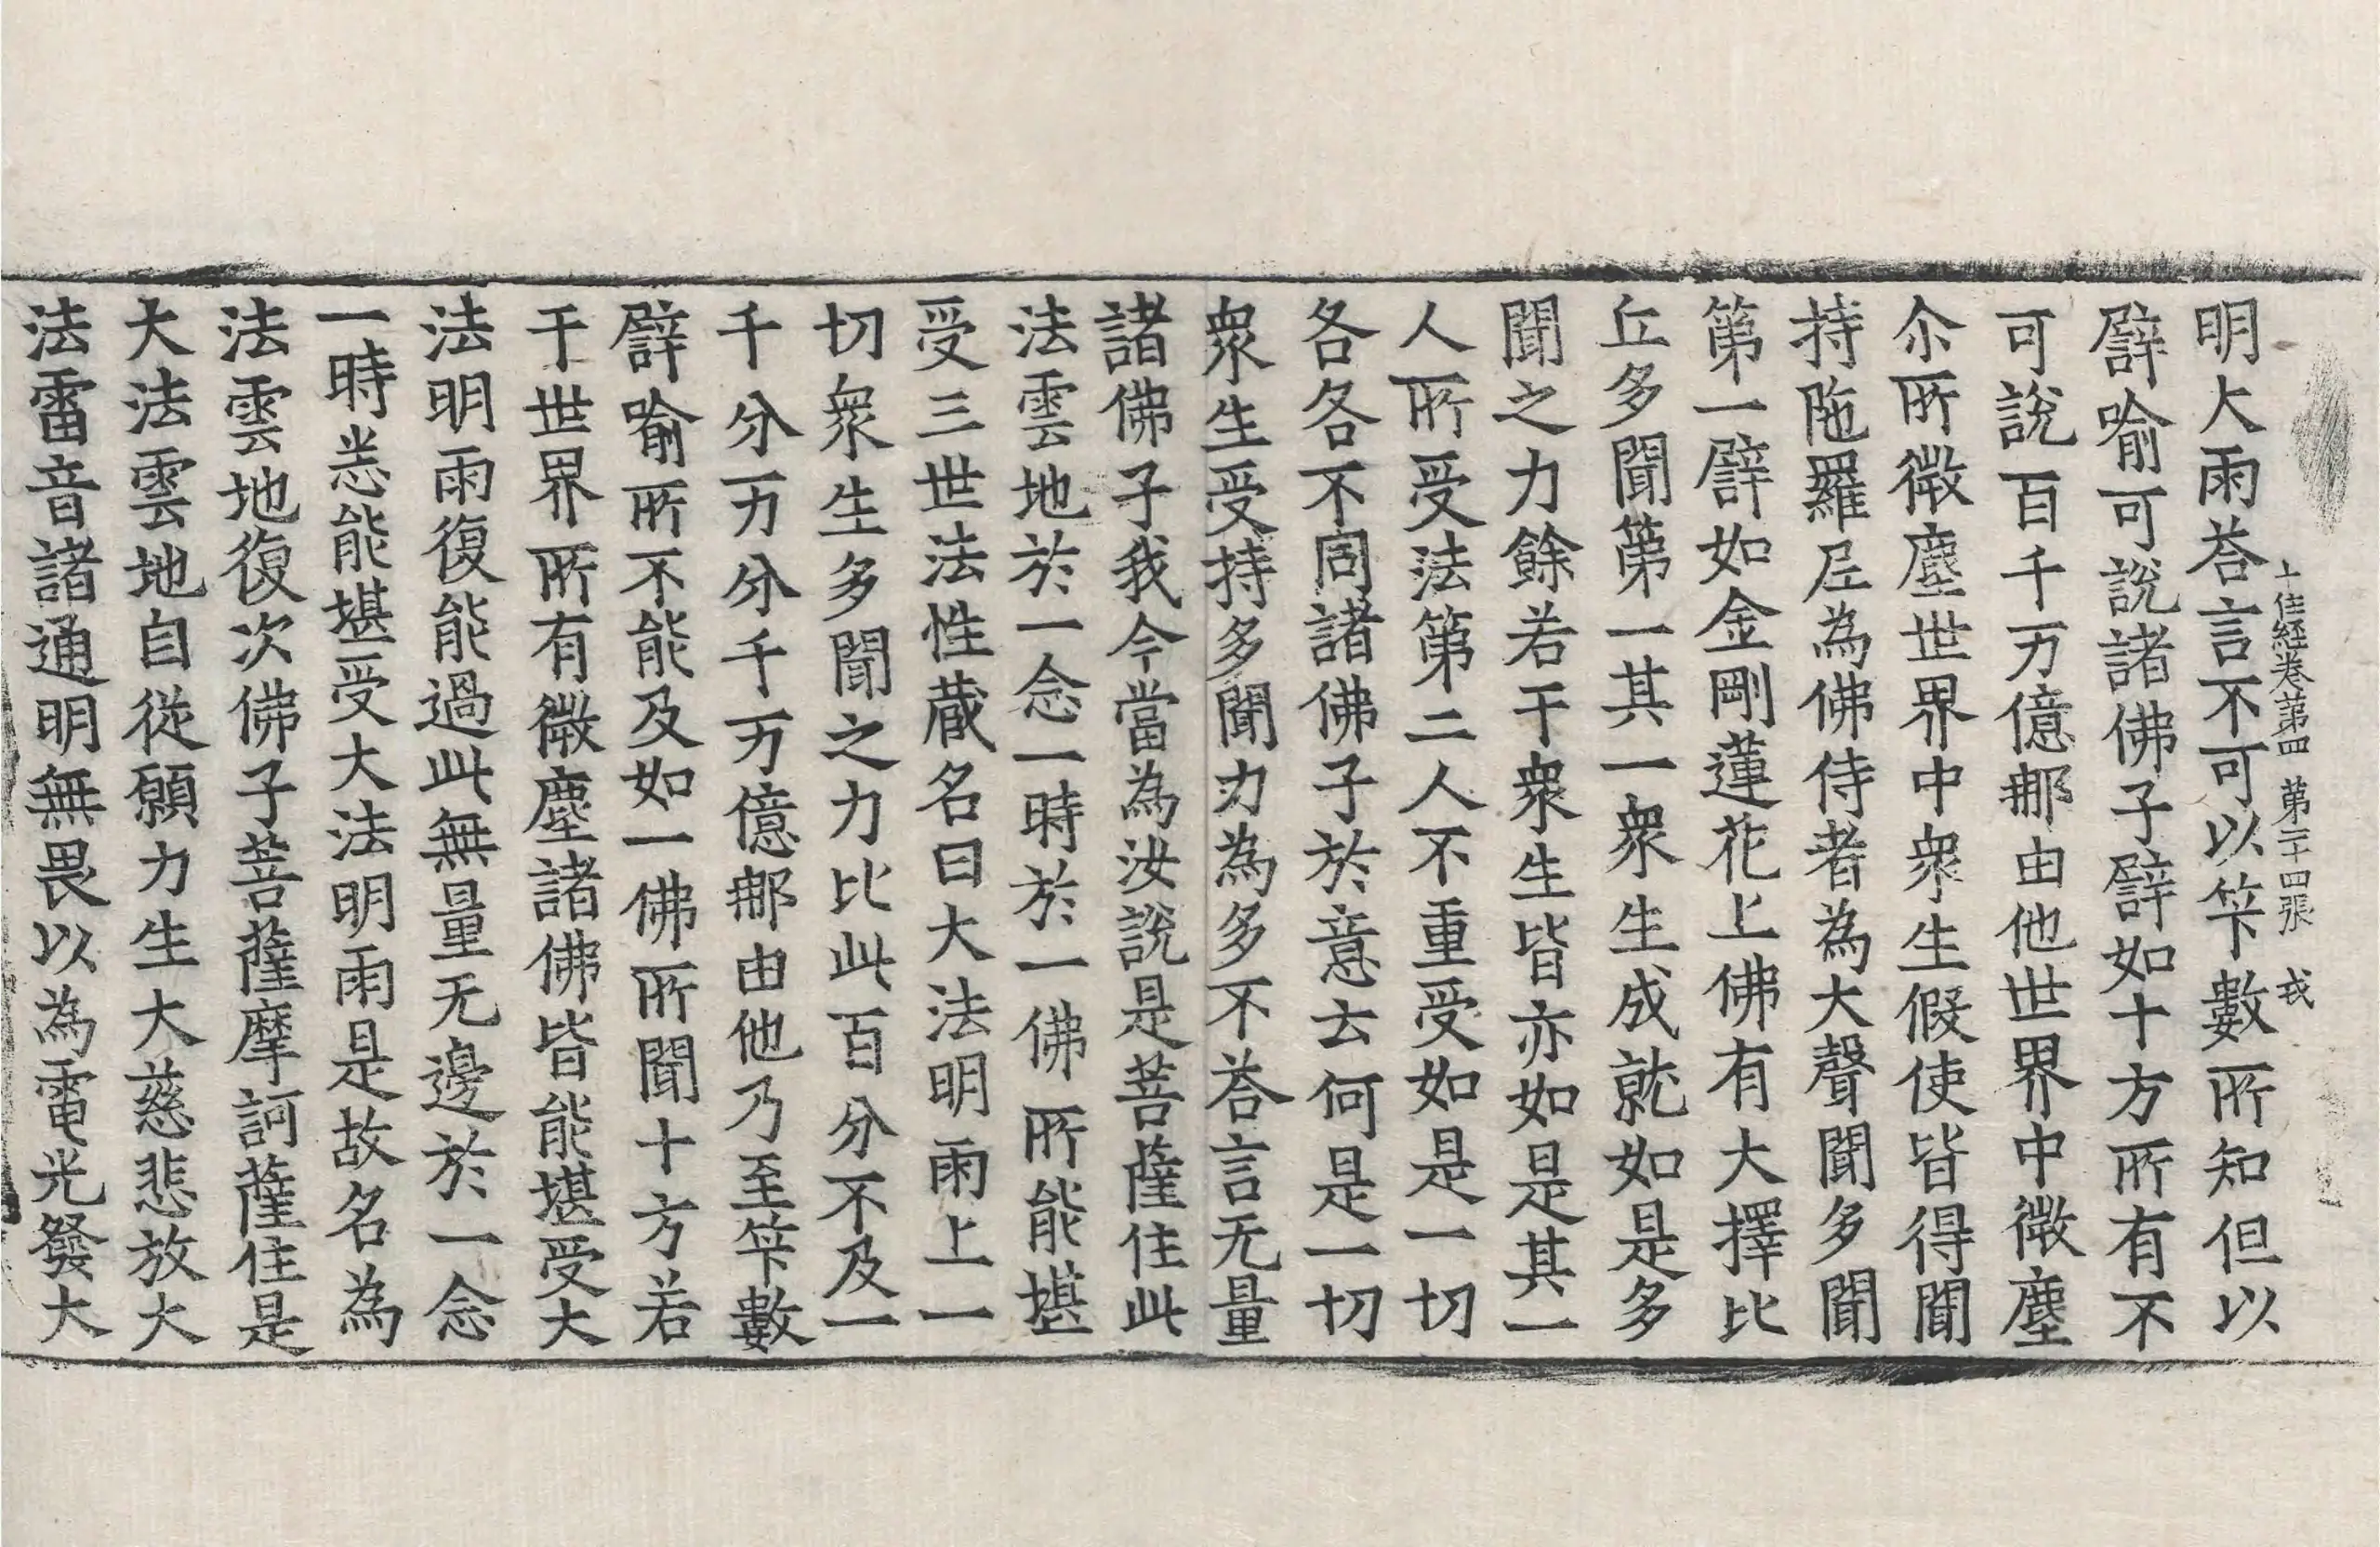 十住經卷第四　第二十四張　戎
明大雨荅言不可以筭數所知但以
譬喻可說諸佛子譬如十方所有不
可說百千万億那由他世界中微塵
尒所微塵世界中衆生假使皆得聞
持陁羅尼為佛侍者為大聲聞多聞
第一譬如金剛蓮花上佛有大擇比
丘多聞第一其一衆生成就如是多
聞之力餘若干衆生皆亦如是其一
人所受法第二人不重受如是一切
各各不同諸佛子於意云何是一切
衆生受持多聞力為多不荅言无量
諸佛子我今當為汝說是菩薩住此
法雲地於一念一時於一佛所能堪
受三世法性藏名曰大法明雨上一
切衆生多聞之力比此百分不及一
千分万分千万億那由他乃至筭數
譬喻所不能及如一佛所聞十方若
干世界所有微塵諸佛皆能堪受大
法明雨復能過此無量无邊於一念
一時悉能堪受大法明雨是故名為
法雲地復次佛子菩薩摩訶薩住是
大法雲地自從願力生大慈悲放大
法雷音諸通明無畏以為電光發大